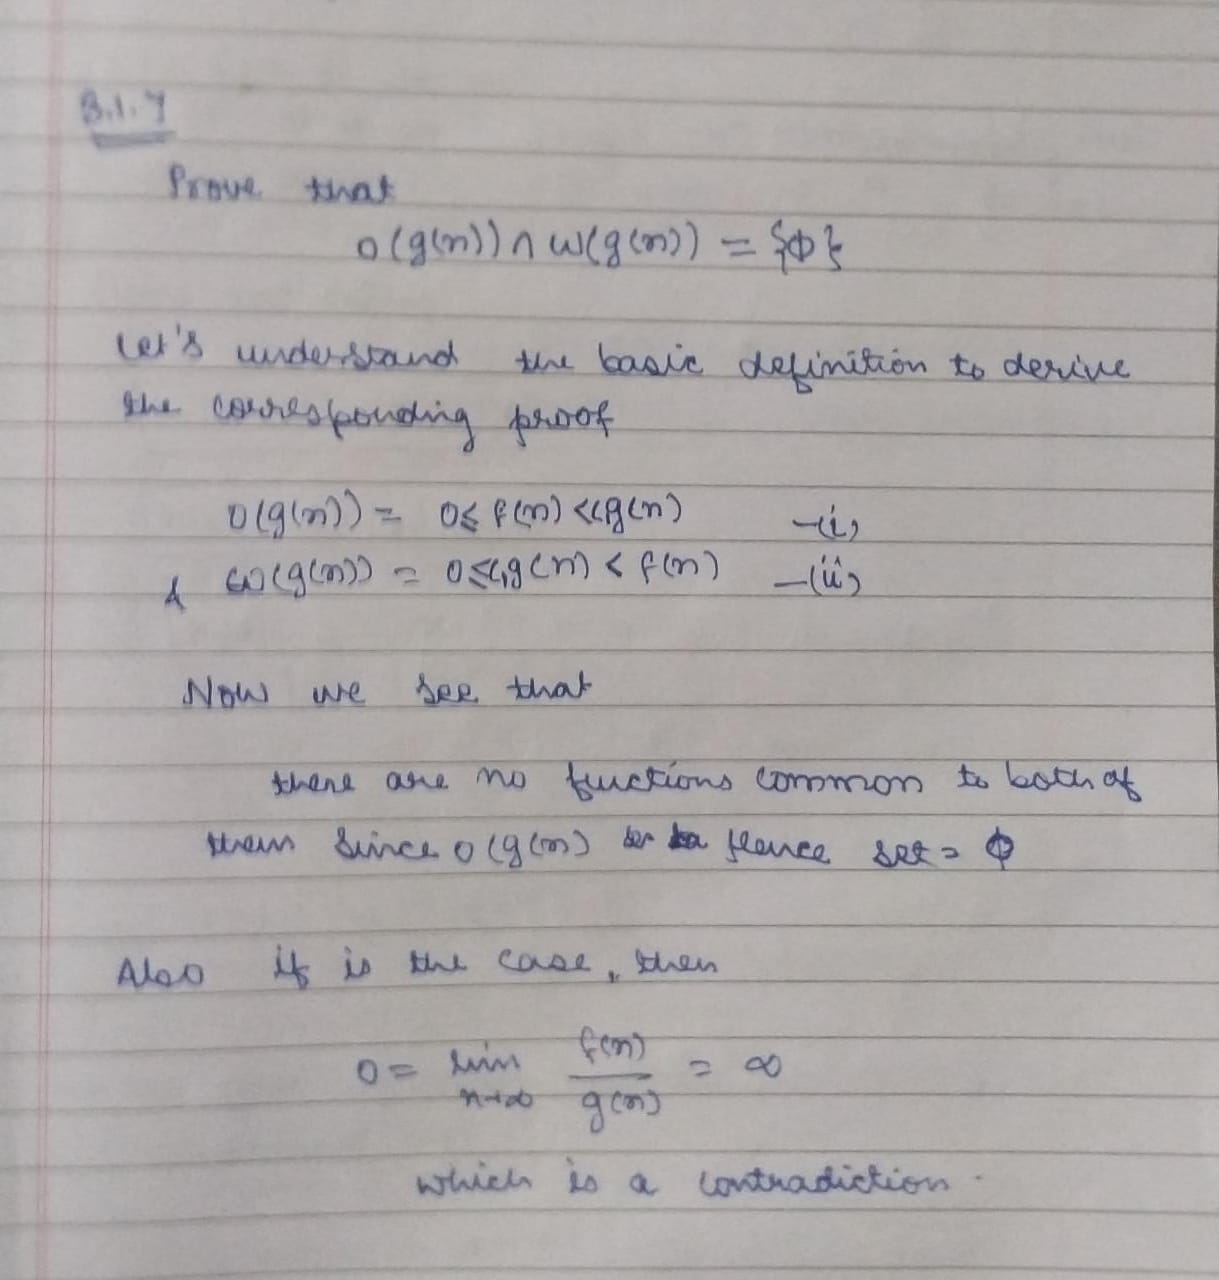 3.1.7
Prove that
o(g(n)) ∩ ω(g(n)) = {ϕ}
Let's understand the basic definition to derive
the corresponding proof
o(g(n)) = 0≤ f(n) <cg(n) -(i)
& ω(g(n)) = 0≤c₁g(n) < f(n) -(ii)
Now we see that
there are no fuctions common to both of
them since o(g(n)) Hence set = ϕ
Also if is the case, then
0 = lim n→∞ f(n)/g(n) = ∞
which is a contradiction.